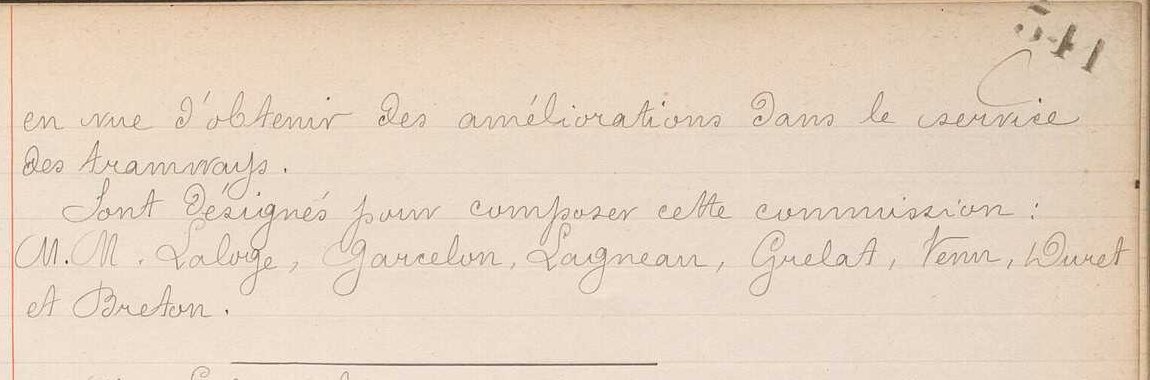 541
en vue d'obtenir des améliorations dans le service
des tramways.
Sont désignés pour composer cette commission :
M.M. Laloge, Garcelon, Lagneau, Grelat, Venn, Duret
et Breton.